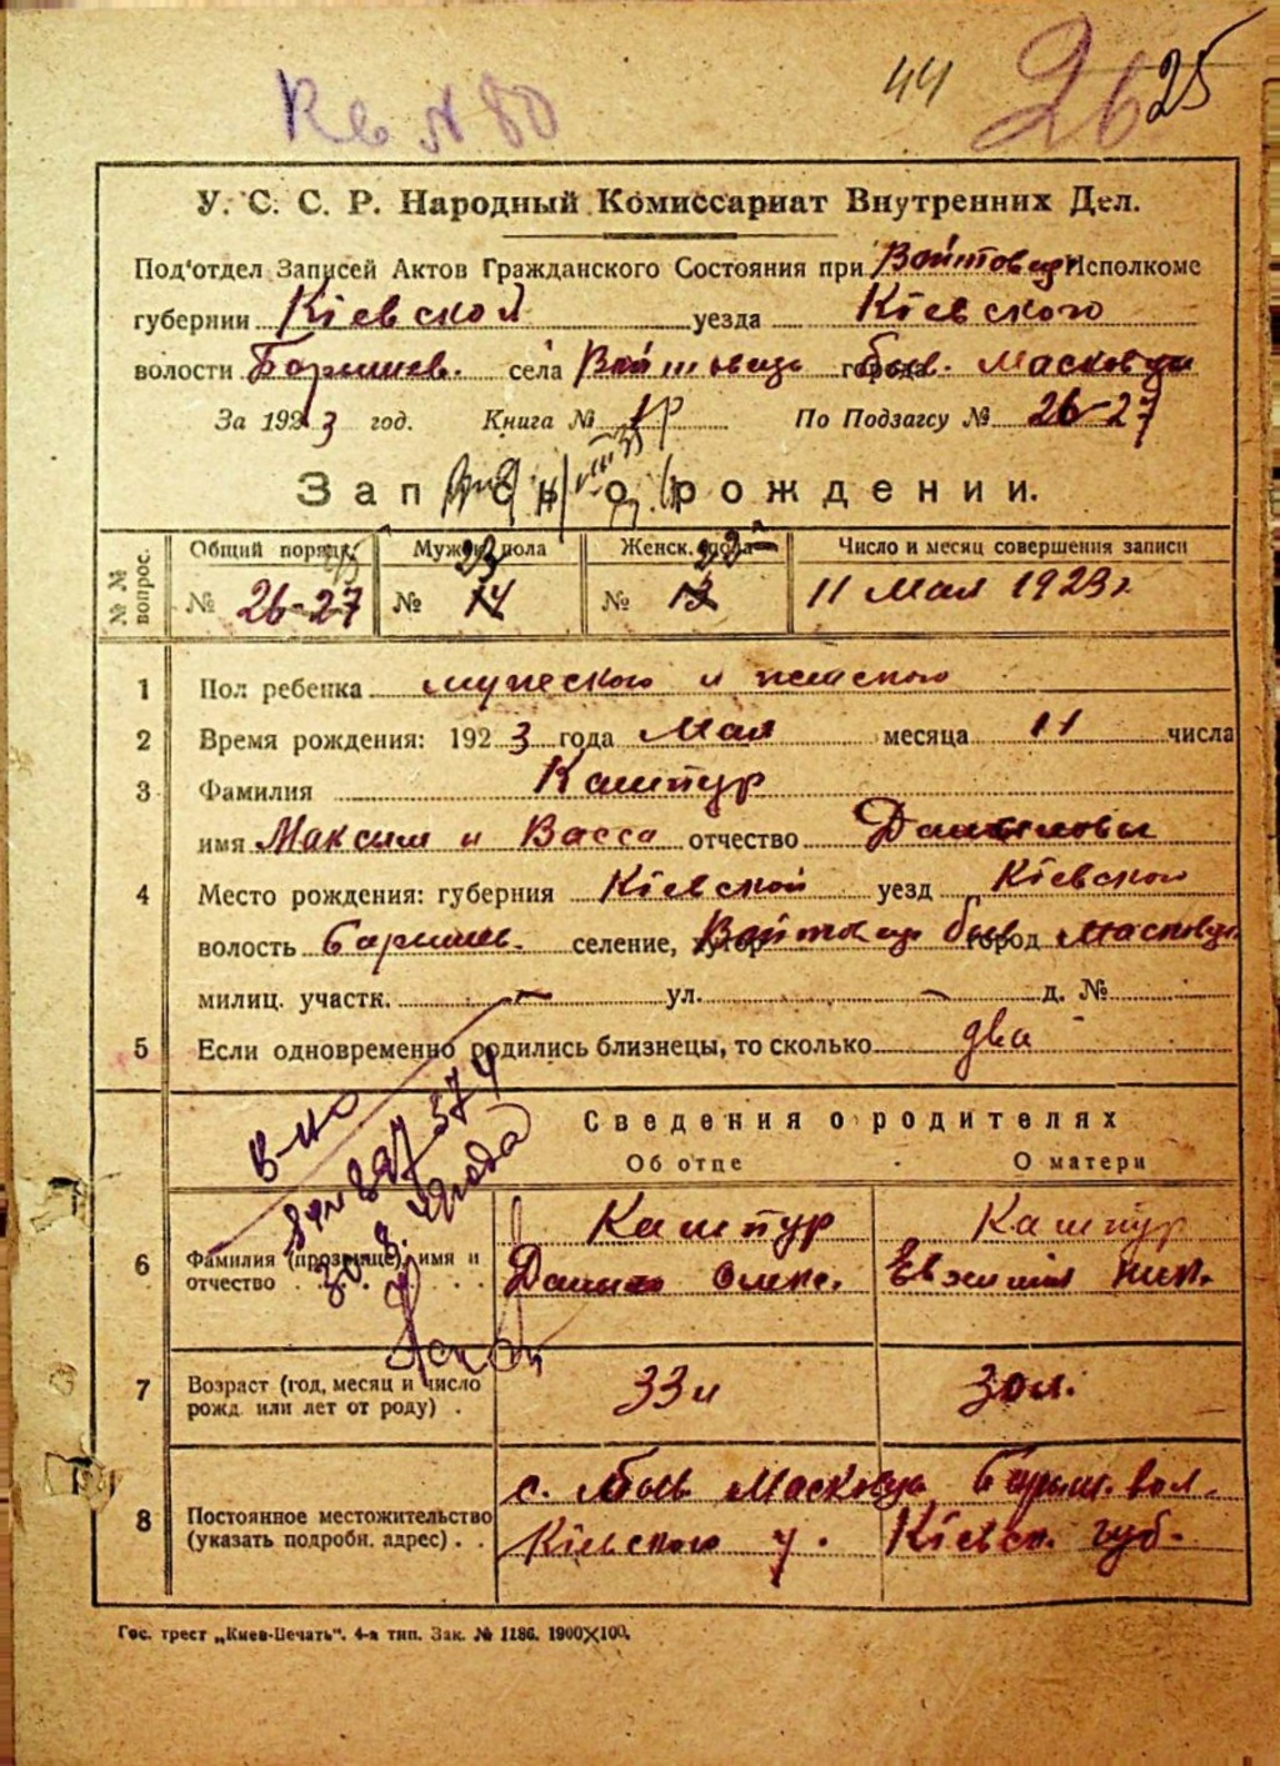 Кв № 80 44 26 25
У. С. С. Р. Народный Комиссариат Внутренних Дел.
Под'отдел Записей Актов Гражданского Состояния при Войтовец Исполкоме
губернии Кіевской уезда Кіевского
волости Баришев. села Войтовець города быв. Масковци
За 1923 год. Книга № 1 По Подзагсу № 26-27
Запись о рождении.
№№ вопрос. Общий поряд. Мужск. пола Женск. пола Число и месяц совершения записи
23 22
№ 26-27 № 14 № 13 11 Мая 1923 г.
1 Пол ребенка мужеского и женского
2 Время рождения: 1923 года Мая месяца 11 числа
3 Фамилия Кашпур
имя Максим и Васса отчество Даниловы
4 Место рождения: губерния Кіевской уезд Кіевского
волость Баришев. селение, хутор быв город Масковци
милиц. участк. — ул. — д. №
5 Если одновременно родились близнецы, то сколько два
Сведения о родителях
Об отце О матери
Кашпур Кашпур
6 Фамилия (прозвище), имя и отчество Данило Евжения Ник.
7 Возраст (год, месяц и число рожд. или лет от роду) . 33 л 30 л.
с. быв. Масковци Барыш. вол.
8 Постоянное местожительство (указать подробн. адрес) . . Кіевского у. Кіевск. губ.
Гос. трест „Киев-Печать“. 4-я тип. Зак. № 1186. 1900×100.